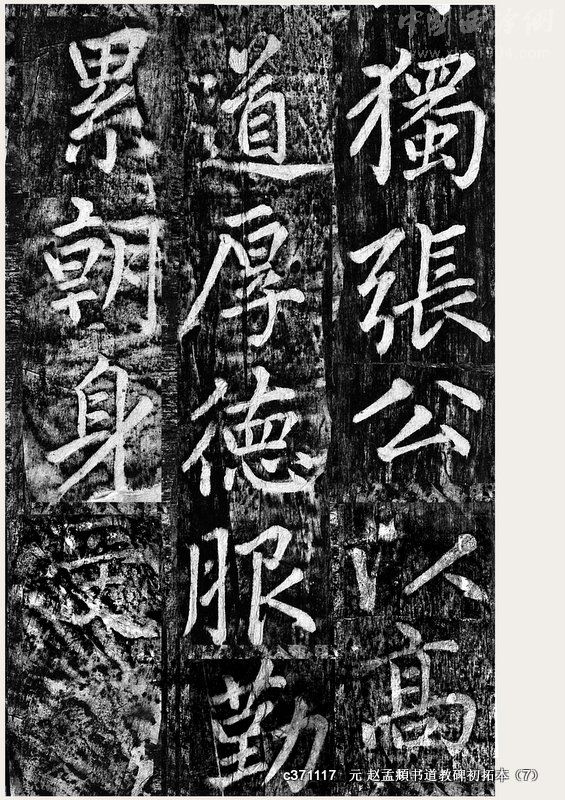 獨張公以高
道厚德服勤
累朝身
c371117 元 赵孟頫书道教碑初拓本（7）